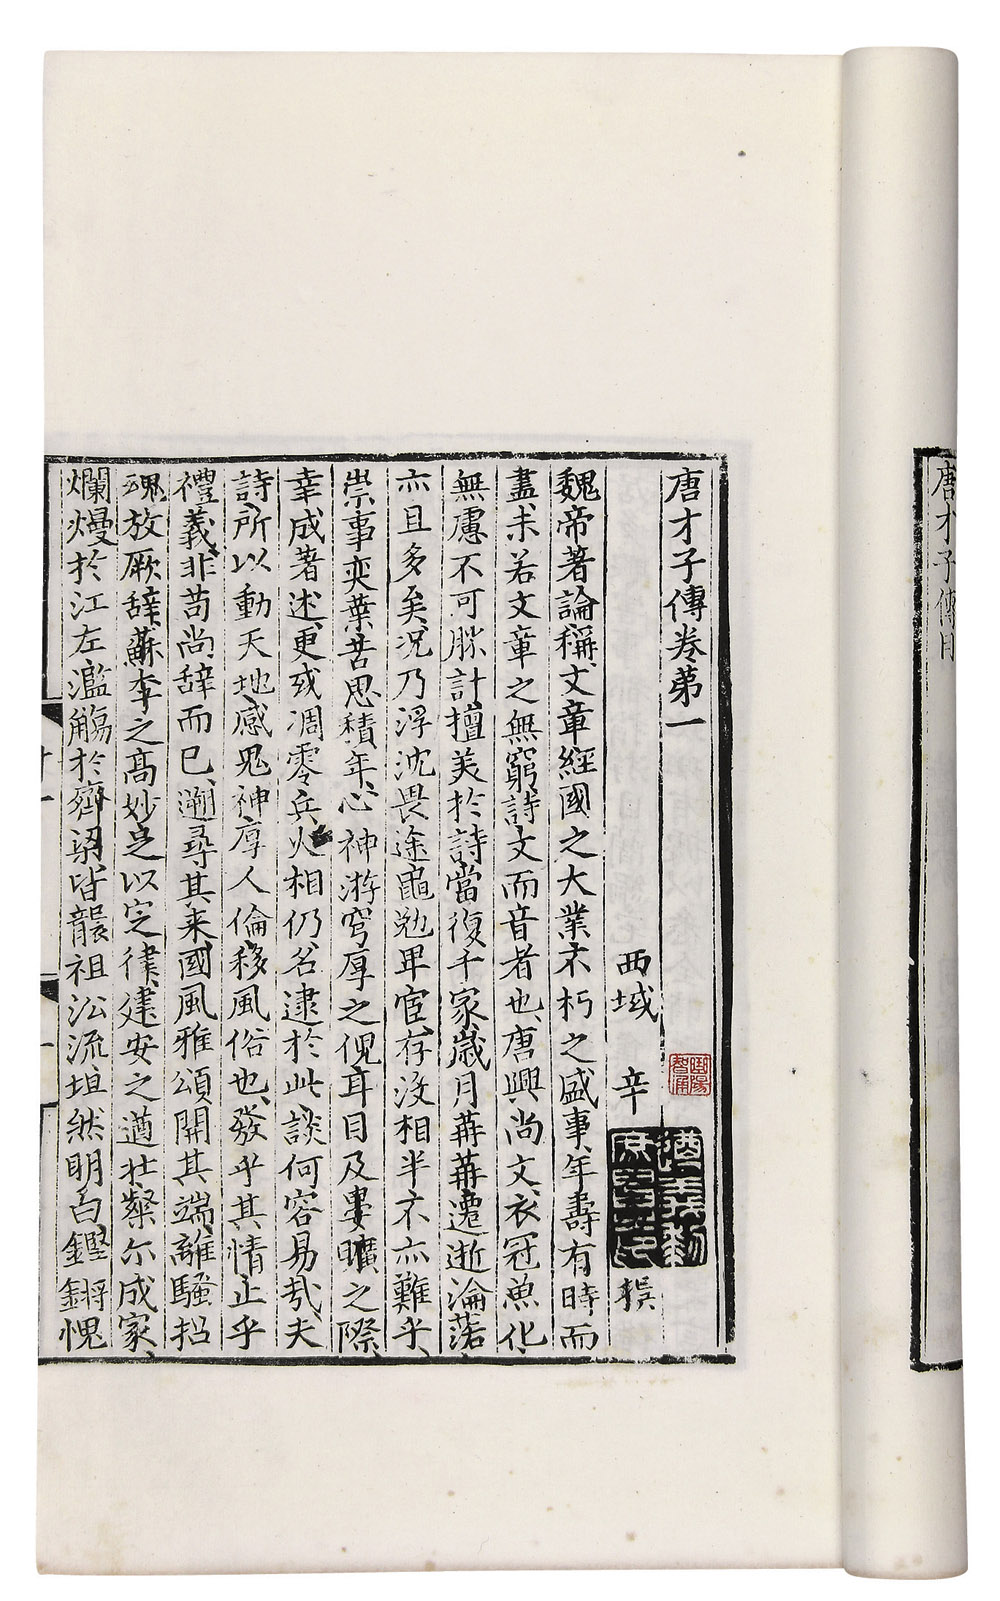 唐才子傳目
唐才子傳卷第一
西域 辛 撰
魏帝著論稱文章經國之大業不朽之盛事年壽有時而
盡未若文章之無窮詩文而音者也唐興尚文衣冠魚化
無慮不可勝計擅美於詩當復千家歲月苒苒遷逝淪落
亦且多矣況乃浮沈畏途黽勉卑宦存沒相半不亦難乎
崇事奕葉苦思積年心神游穹厚之倪耳目及晏曠之際
幸成著述更或凋零兵火相仍名逮於此談何容易哉夫
詩所以動天地感鬼神厚人倫移風俗也發乎其情止乎
禮義非苟尚辞而已遡尋其来國風雅頌開其端離騷招
魂放厥辞蘇李之高妙足以定律建安之遒壯粲尓成家
爛熳於江左濫觴於齊梁皆襲祖沿流坦然明白鏗鏘愧